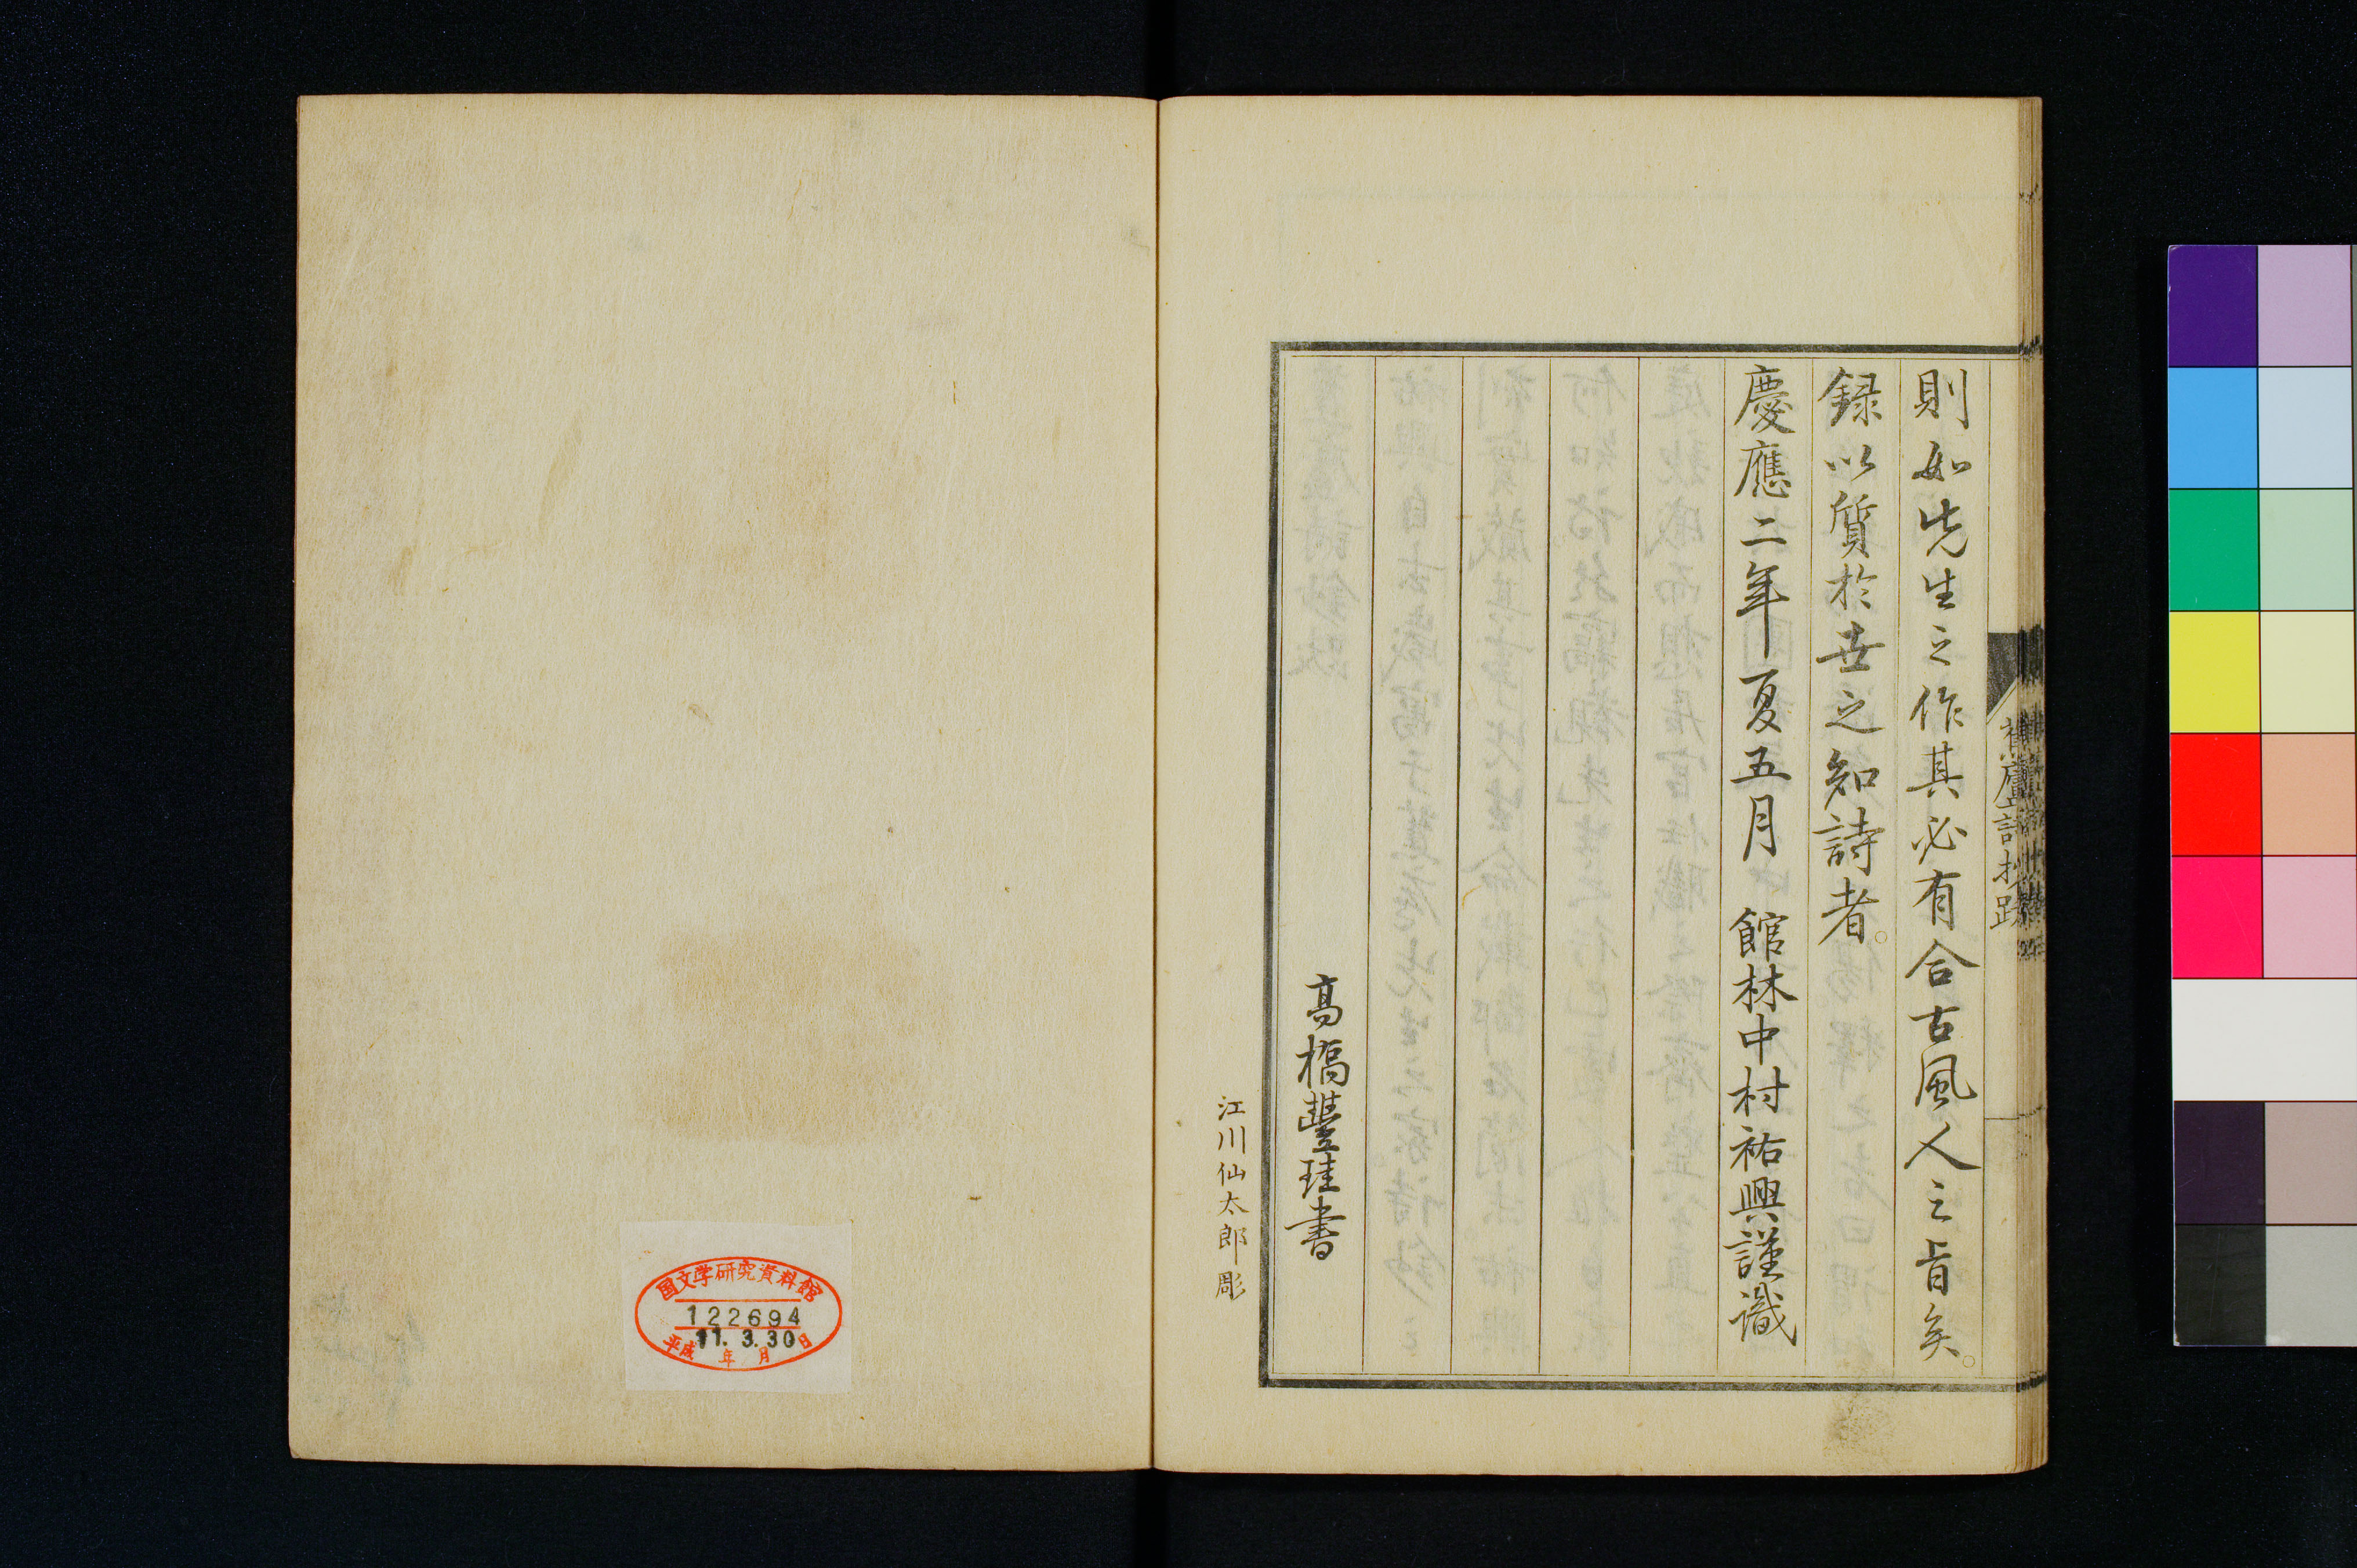 則如先生之作其必有合古風人之旨矣。
録以質於世之知詩者。
慶應二年夏五月 館林中村祐興謹識
高橋豐珪書
江川仙太郎彫
国文学研究資料館
122694
平成11.3.30
年月日